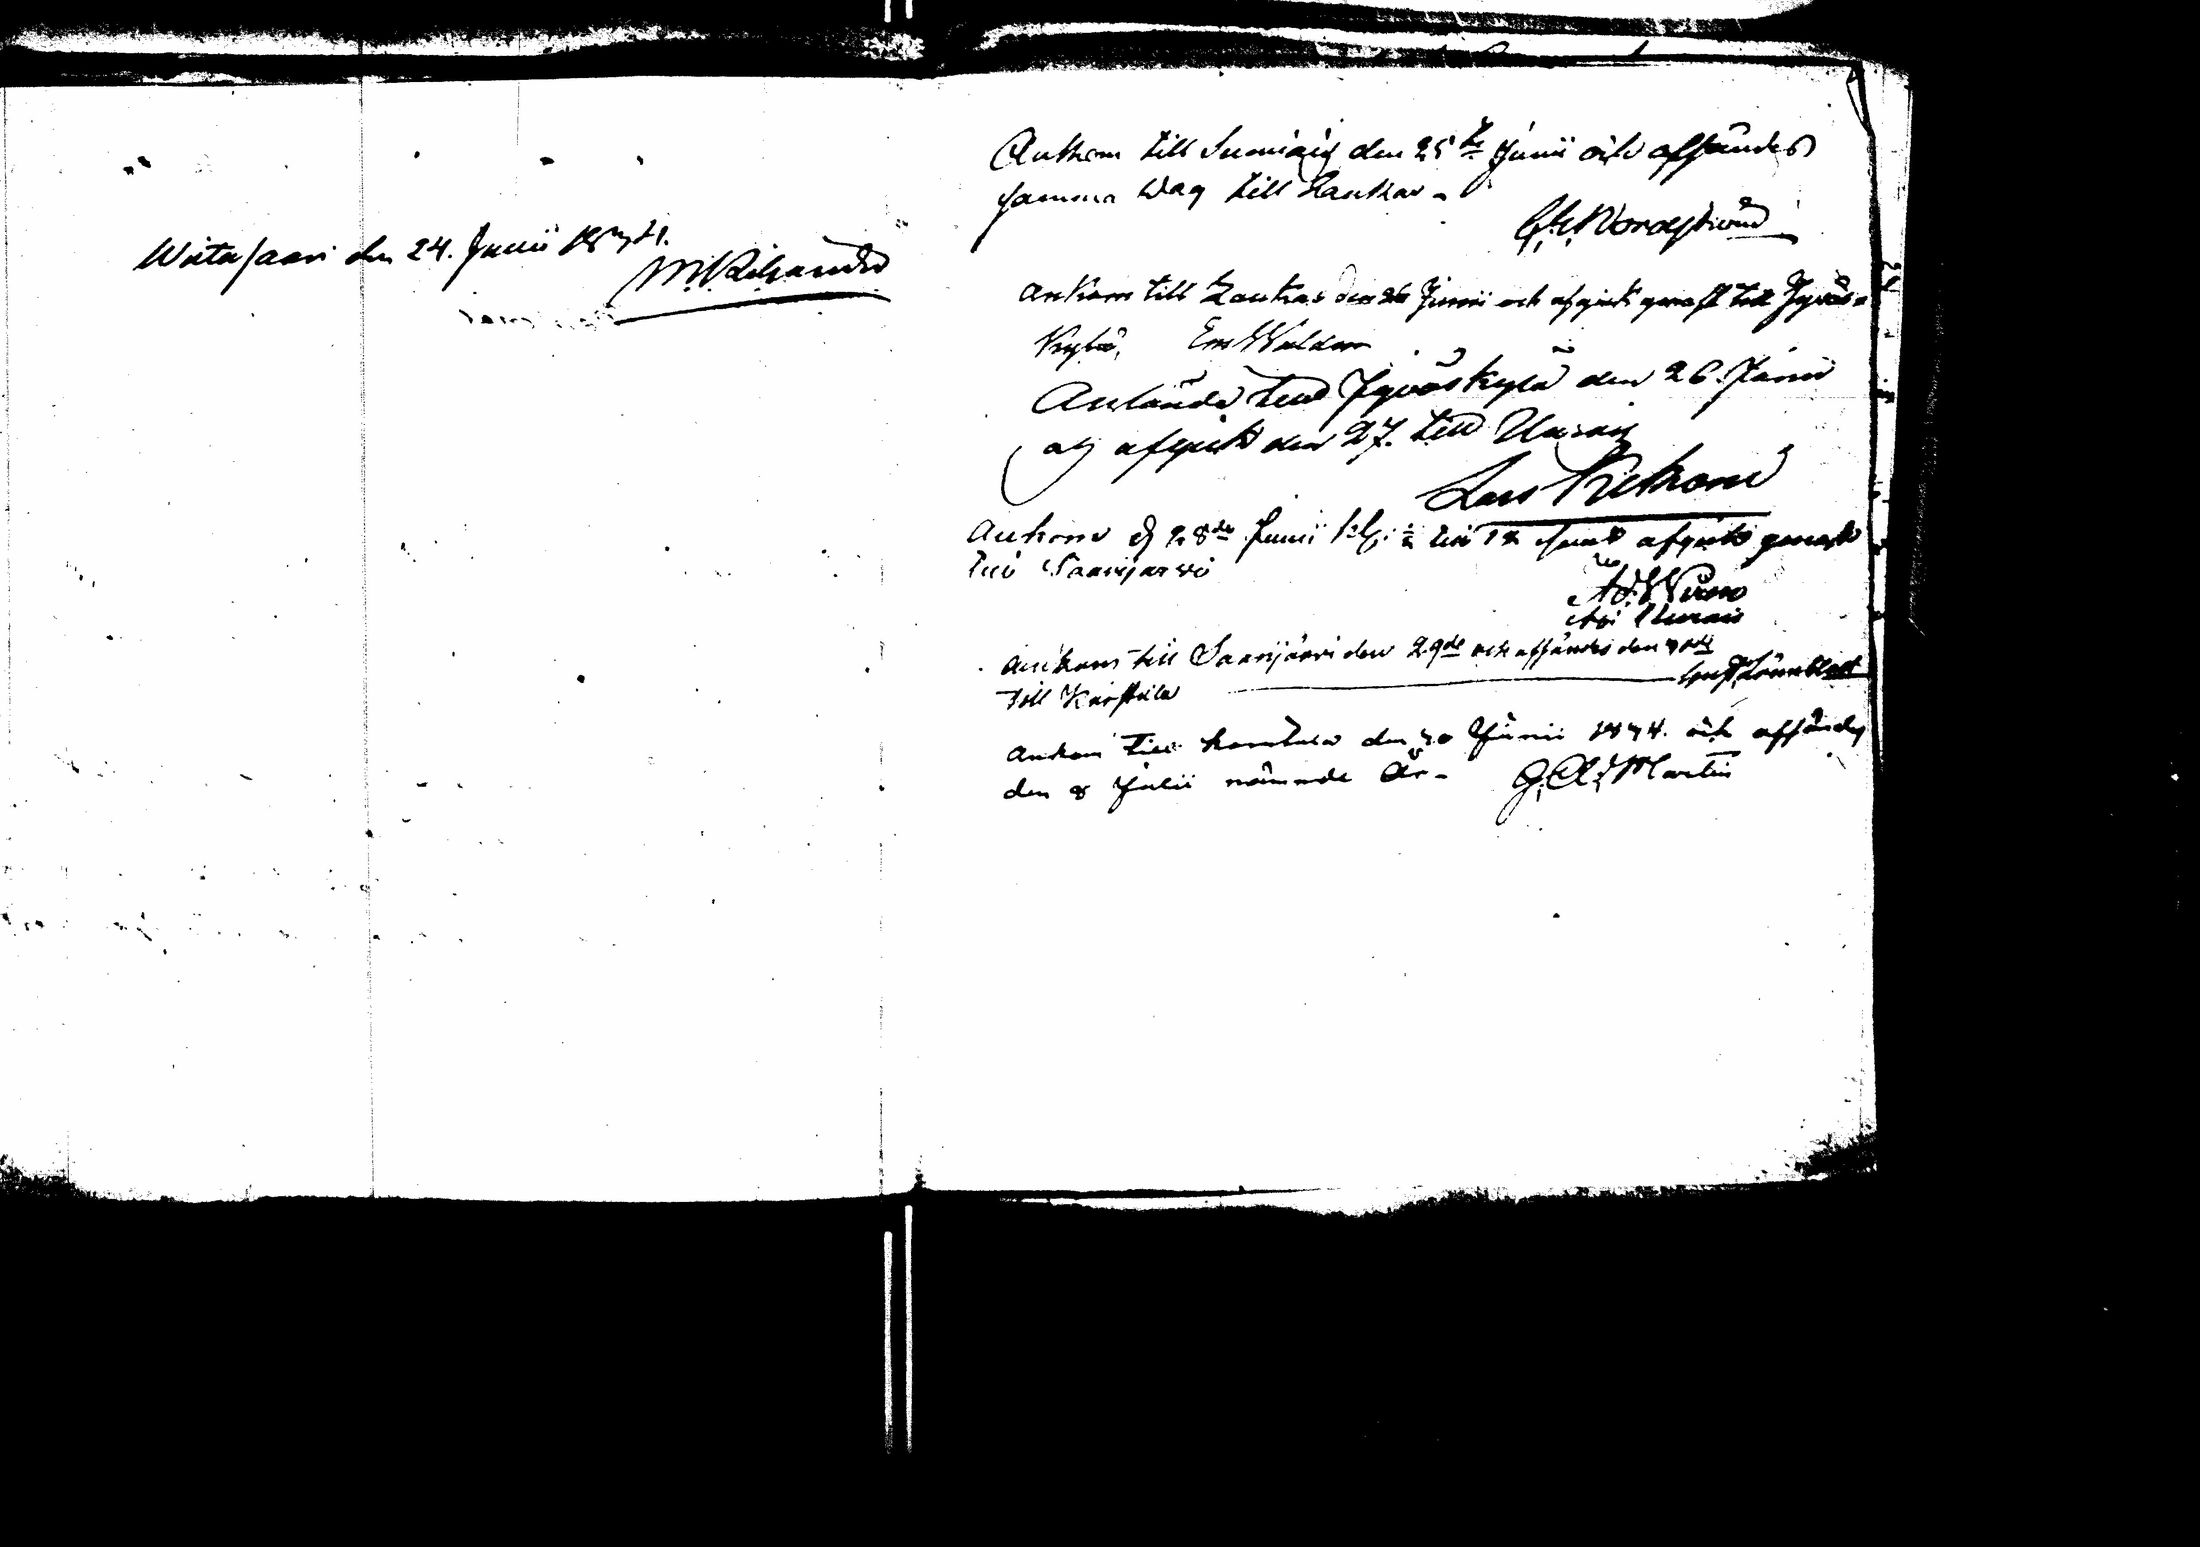 Wiitasaari den 24. Junii 1874.
Ankom till Sumiais den 25te Junii och affändes
samma dag till Laukas -
Nordstrand
Ankom till Laukas den 26 Junii och afgick genast till Jyväs-
kylä,
Anlände till Jyväskylä den 26. Junii
och afgick den 27. till Uurais
Lars
Ankom d 28de Junii kl. ½ till 12 samt afgick genast
till Saarijärvi
Uurais
Ankom till Saarijärvi den 29de och affändes den 30de
till Karstula Lönnblad
Ankom till Karstula den 30 Junii 1874. och affändes
den 8 Julii nämnde År - G. A. Martin